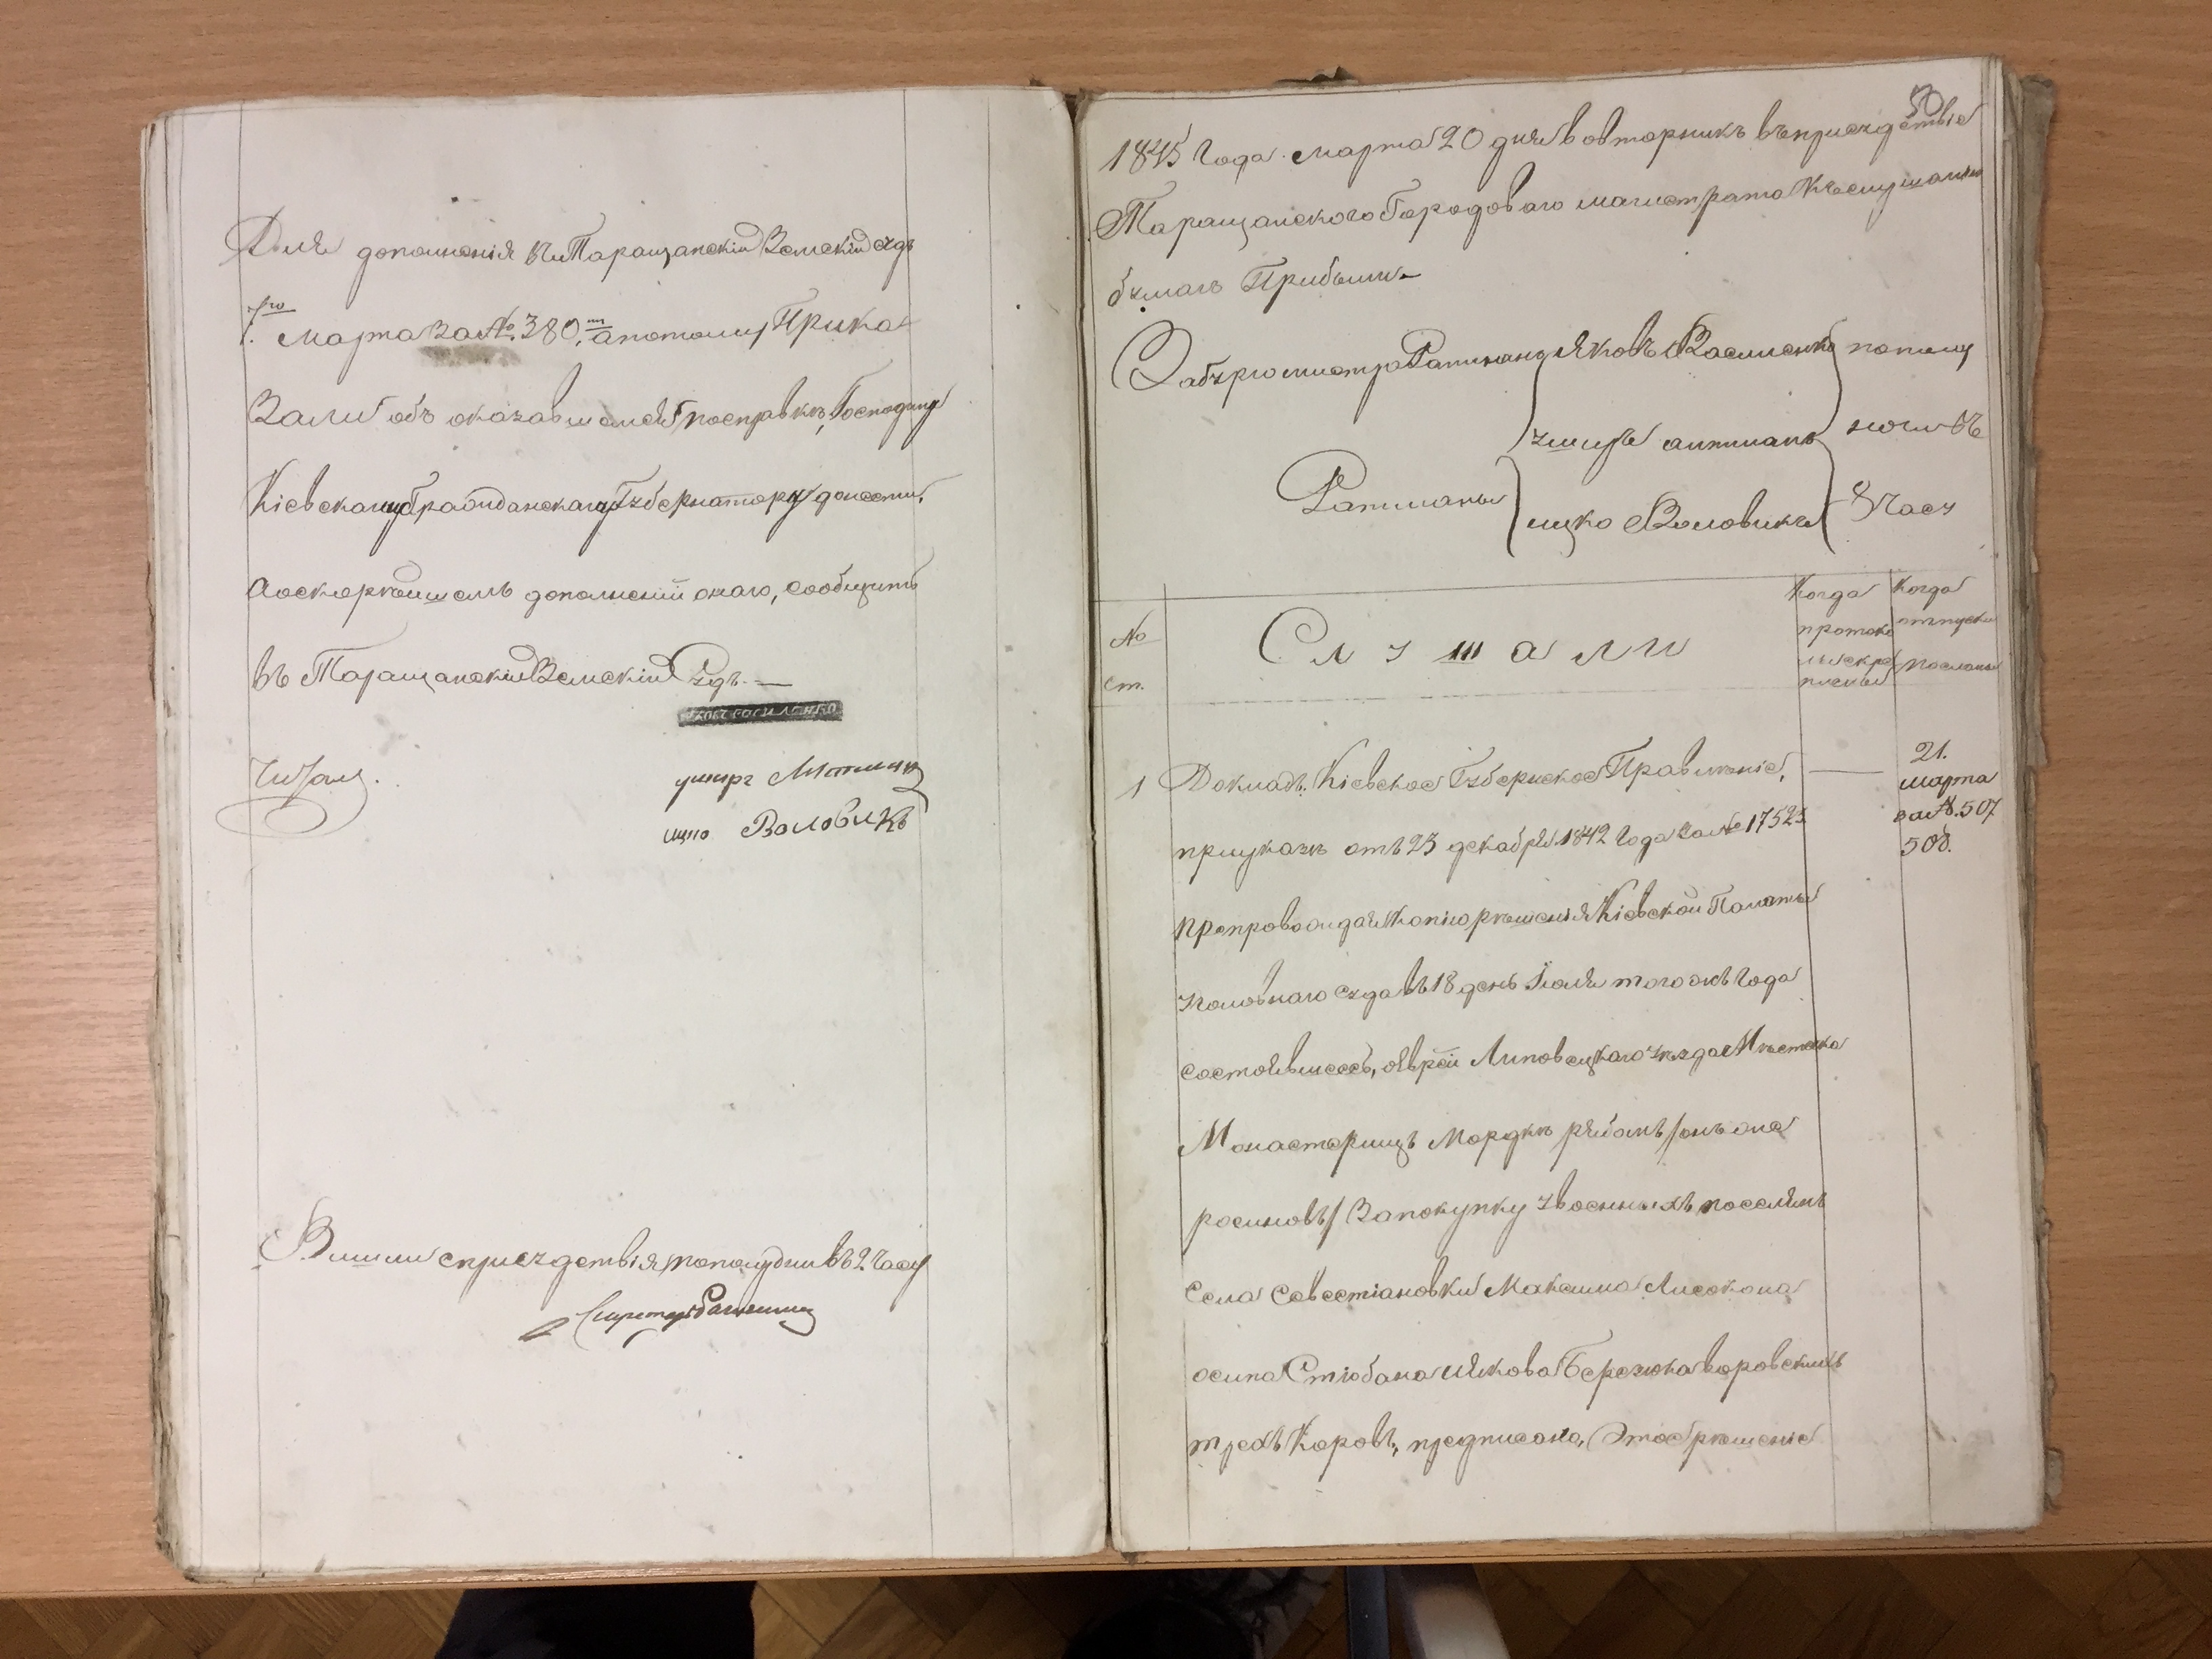 Для дополненія въ Таращанскій Земскій судъ
7го марта за № 380, а потому Прика
зали объ оказавшемся по справкѣ, Господину
Кіевскому Гражданскому Губернатору донести,
а о скорѣйшемъ дополненіи онаго, сообщить
въ Таращанскій Земскій Судъ. —
Читалъ.
умеръ Литманъ
ицко Воловикъ
Вышли съ присудствія пополудни въ 2 часу
Секретарь
50
1845 Года марта 20 дня во вторникъ въ присудствіе
Таращанского Городоваго магистрата къ слушанью
бумагъ Прибыли
За бургомистра Ратманъ Яковъ Василенко пополу
ночи въ
Ратманы
ицко Воловикъ 8 часу
№ ст.
Слушали
Когда протоколы скреплены
Когда отпуски посланы
1 Докладъ. Кіевское Губернское Правленіе,
при указѣ отъ 23 декабря 1842 года за № 17523
препровождая копію рѣшенія Кіевской Палаты
уголовнаго суда въ 18 день Іюля того жъ года
состоявшееся, о Евреи Липовецкаго уѣзда Мѣстечка
Монастерищъ Мордкѣ рябомъ /онъ же
росиновъ/ за покупку у военныхъ поселянъ
села Севестіановки Максима Лисокона
осипа Стюбана и Якова Березюка воровскихъ
трехъ Коровъ, предписано, Это рѣшеніе
21.
марта
за № 507
508.